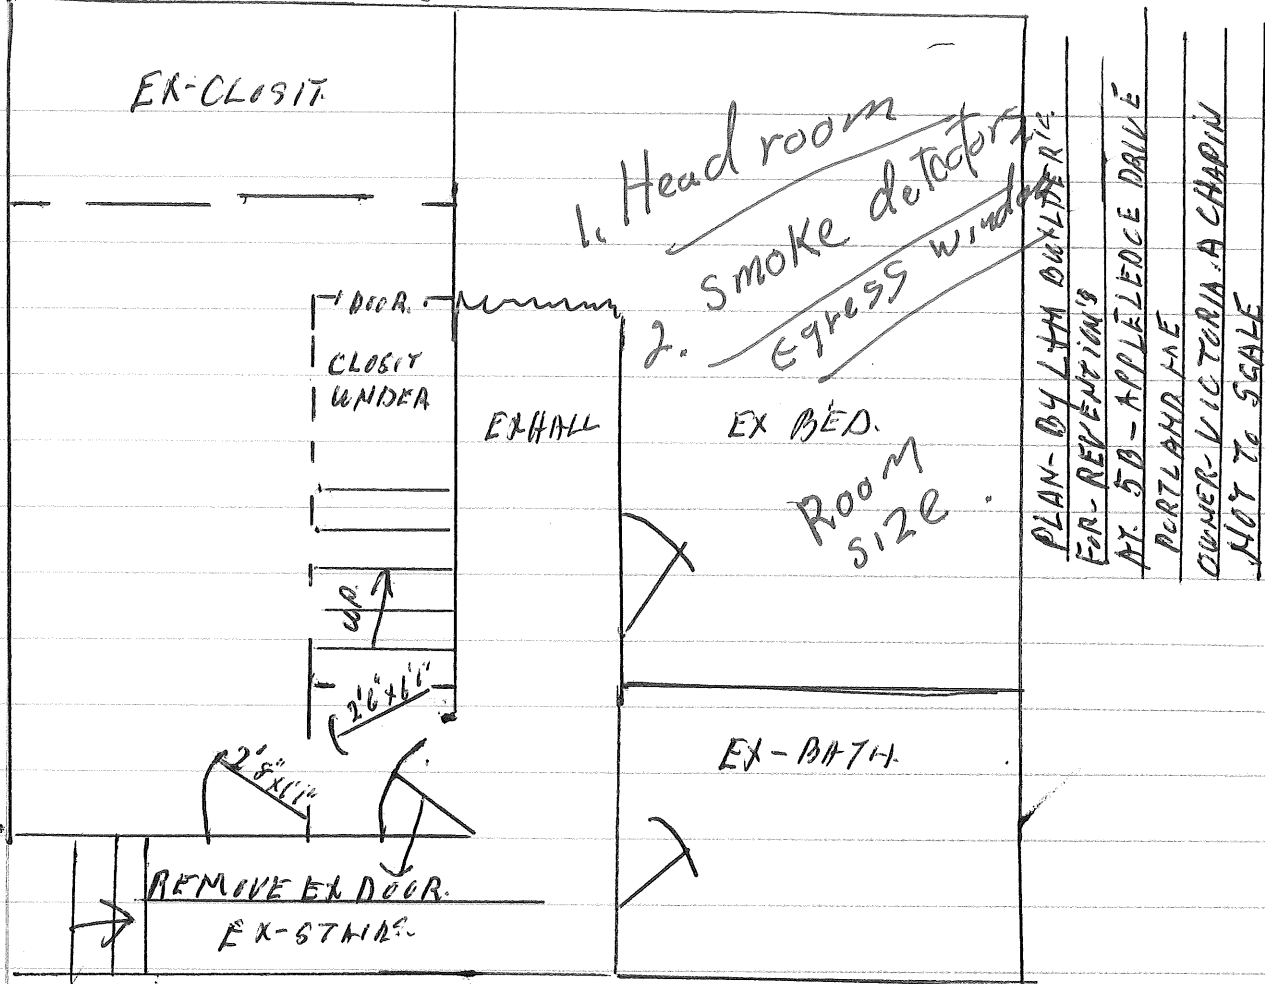 EX-CLOSIT.
1. Head room
smoke detectors
2. Egress window
DOOR.
CLOSIT
UNDER
EXHALL
EX BED.
Room
size.
UP.
2'6"x6'1"
2'8"x6'1"
EX-BATH.
REMOVE EX DOOR.
EX-STAIRS.
PLAN-BY LTM BUILDER
FOR-REVENTION'S
AT. 5B-APPLELEDCE DRIVE
PORTLAND ME
OWNER-VICTORIA.A CHAPIN
NOT To SCALE